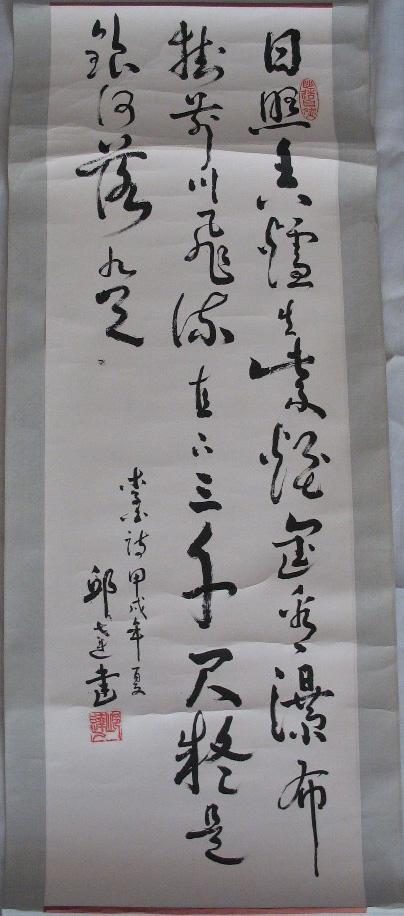 日照香爐生紫煙遙看瀑布
掛前川飛流直下三千尺疑是
銀河落九天
李白詩甲戌年夏
邱達書